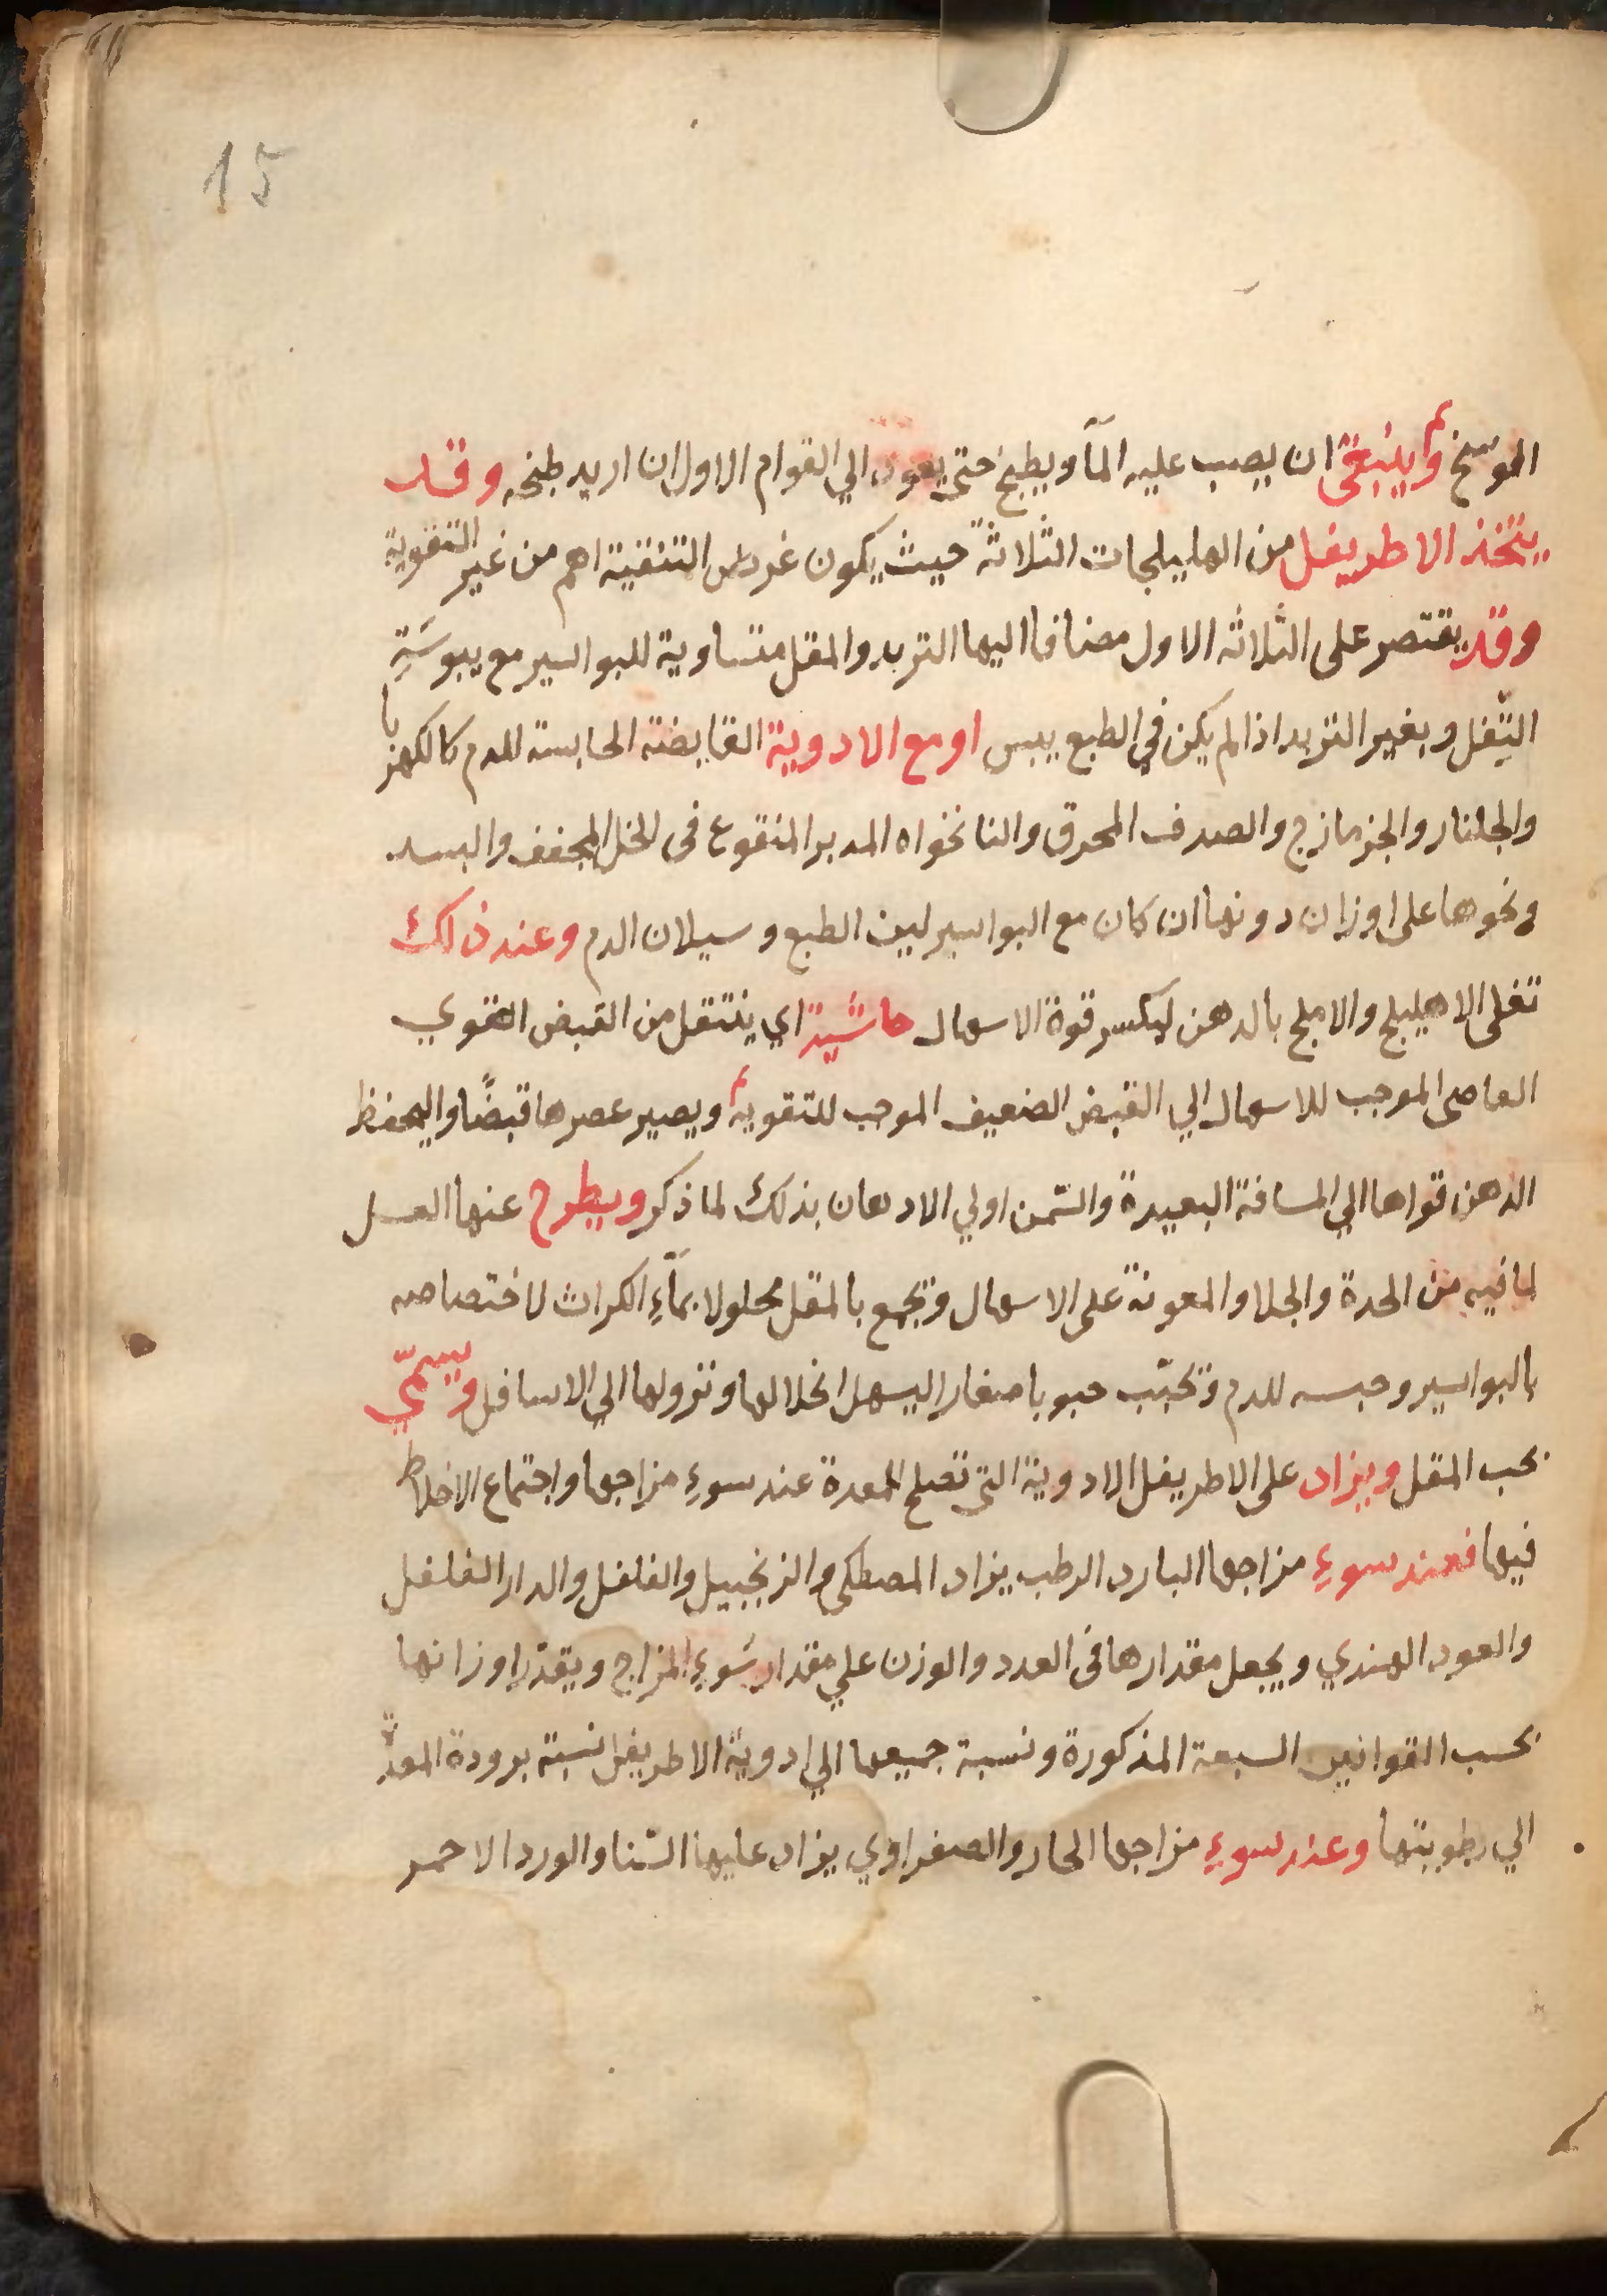 15
الموسخ وينبغي ان يصب عليه المآ ويطبخ حتى يعود الي القوام الاول ان اريد طبخه وقد
يتخذ الاطريفل من الهليلجات الثلاثة حيث يكون غرض التنقية اهم من غير التقوية
وقد يقتصر على الثلاثه الاول مضافا اليها التربد والمقل متساوية للبواسير مع يبوسَةِ
الثّفل وبغير التربد اذا لم يكن في الطبع يبس او مع الادوية القابضة الحابسة للدم كالكهربا
والجلنار والجزمازج والصدف المحرق والنانخواه المدبر المنقوع فى الخل المجفف والبسد
ونحوها على اوزان دونها ان كان مع البواسير لين الطبع وسيلان الدم وعند ذلك
تقلى الاهليلج والاملج بالدهن ليكسر قوة الاسهال حاشية اي ينتقل من القبض القوي
العاصى الموجب للاسهال الي القبض الضعيف الموجب للتقوية ويصير عصرها قبضًا وليحفظ
الدهن قواها الي المسافة البعيدة والسّمن اولي الادهان بذلك لما ذكر ويطرح عنها العسل
لما فيه من الحدة والجلا والمعونة على الاسهال وتجمع بالمقل محلولا بمآءِ الكراث لاختصاصه
بالبواسير وحبسه للدم وتحبّب حبوبا صغارا ليسهل انحلالها ونزولها الي الاسافل ويسمّي
بحب المقل ويزاد على الاطريفل الادوية التى تصلح المعدة عند سوءِ مزاجها واجتماع الاخلاط
فيها فعند سوءِ مزاجها البارد الرطب يزاد المصطكى والزنجبيل والفلفل والدار الفلفل
والعود الهندي ويجعل مقدارها فى العدد والوزن علي مقدار سوءِ المزاج ويقدّر اوزانها
بحسب القوانين السبعة المذكورة ونسبة جميعها الي ادوية الاطريفل نسبة برودة المعدة
الي رطوبتها وعند سوءِ مزاجها الحار والصفراوي يزاد عليها السّنا والورد الاحمر